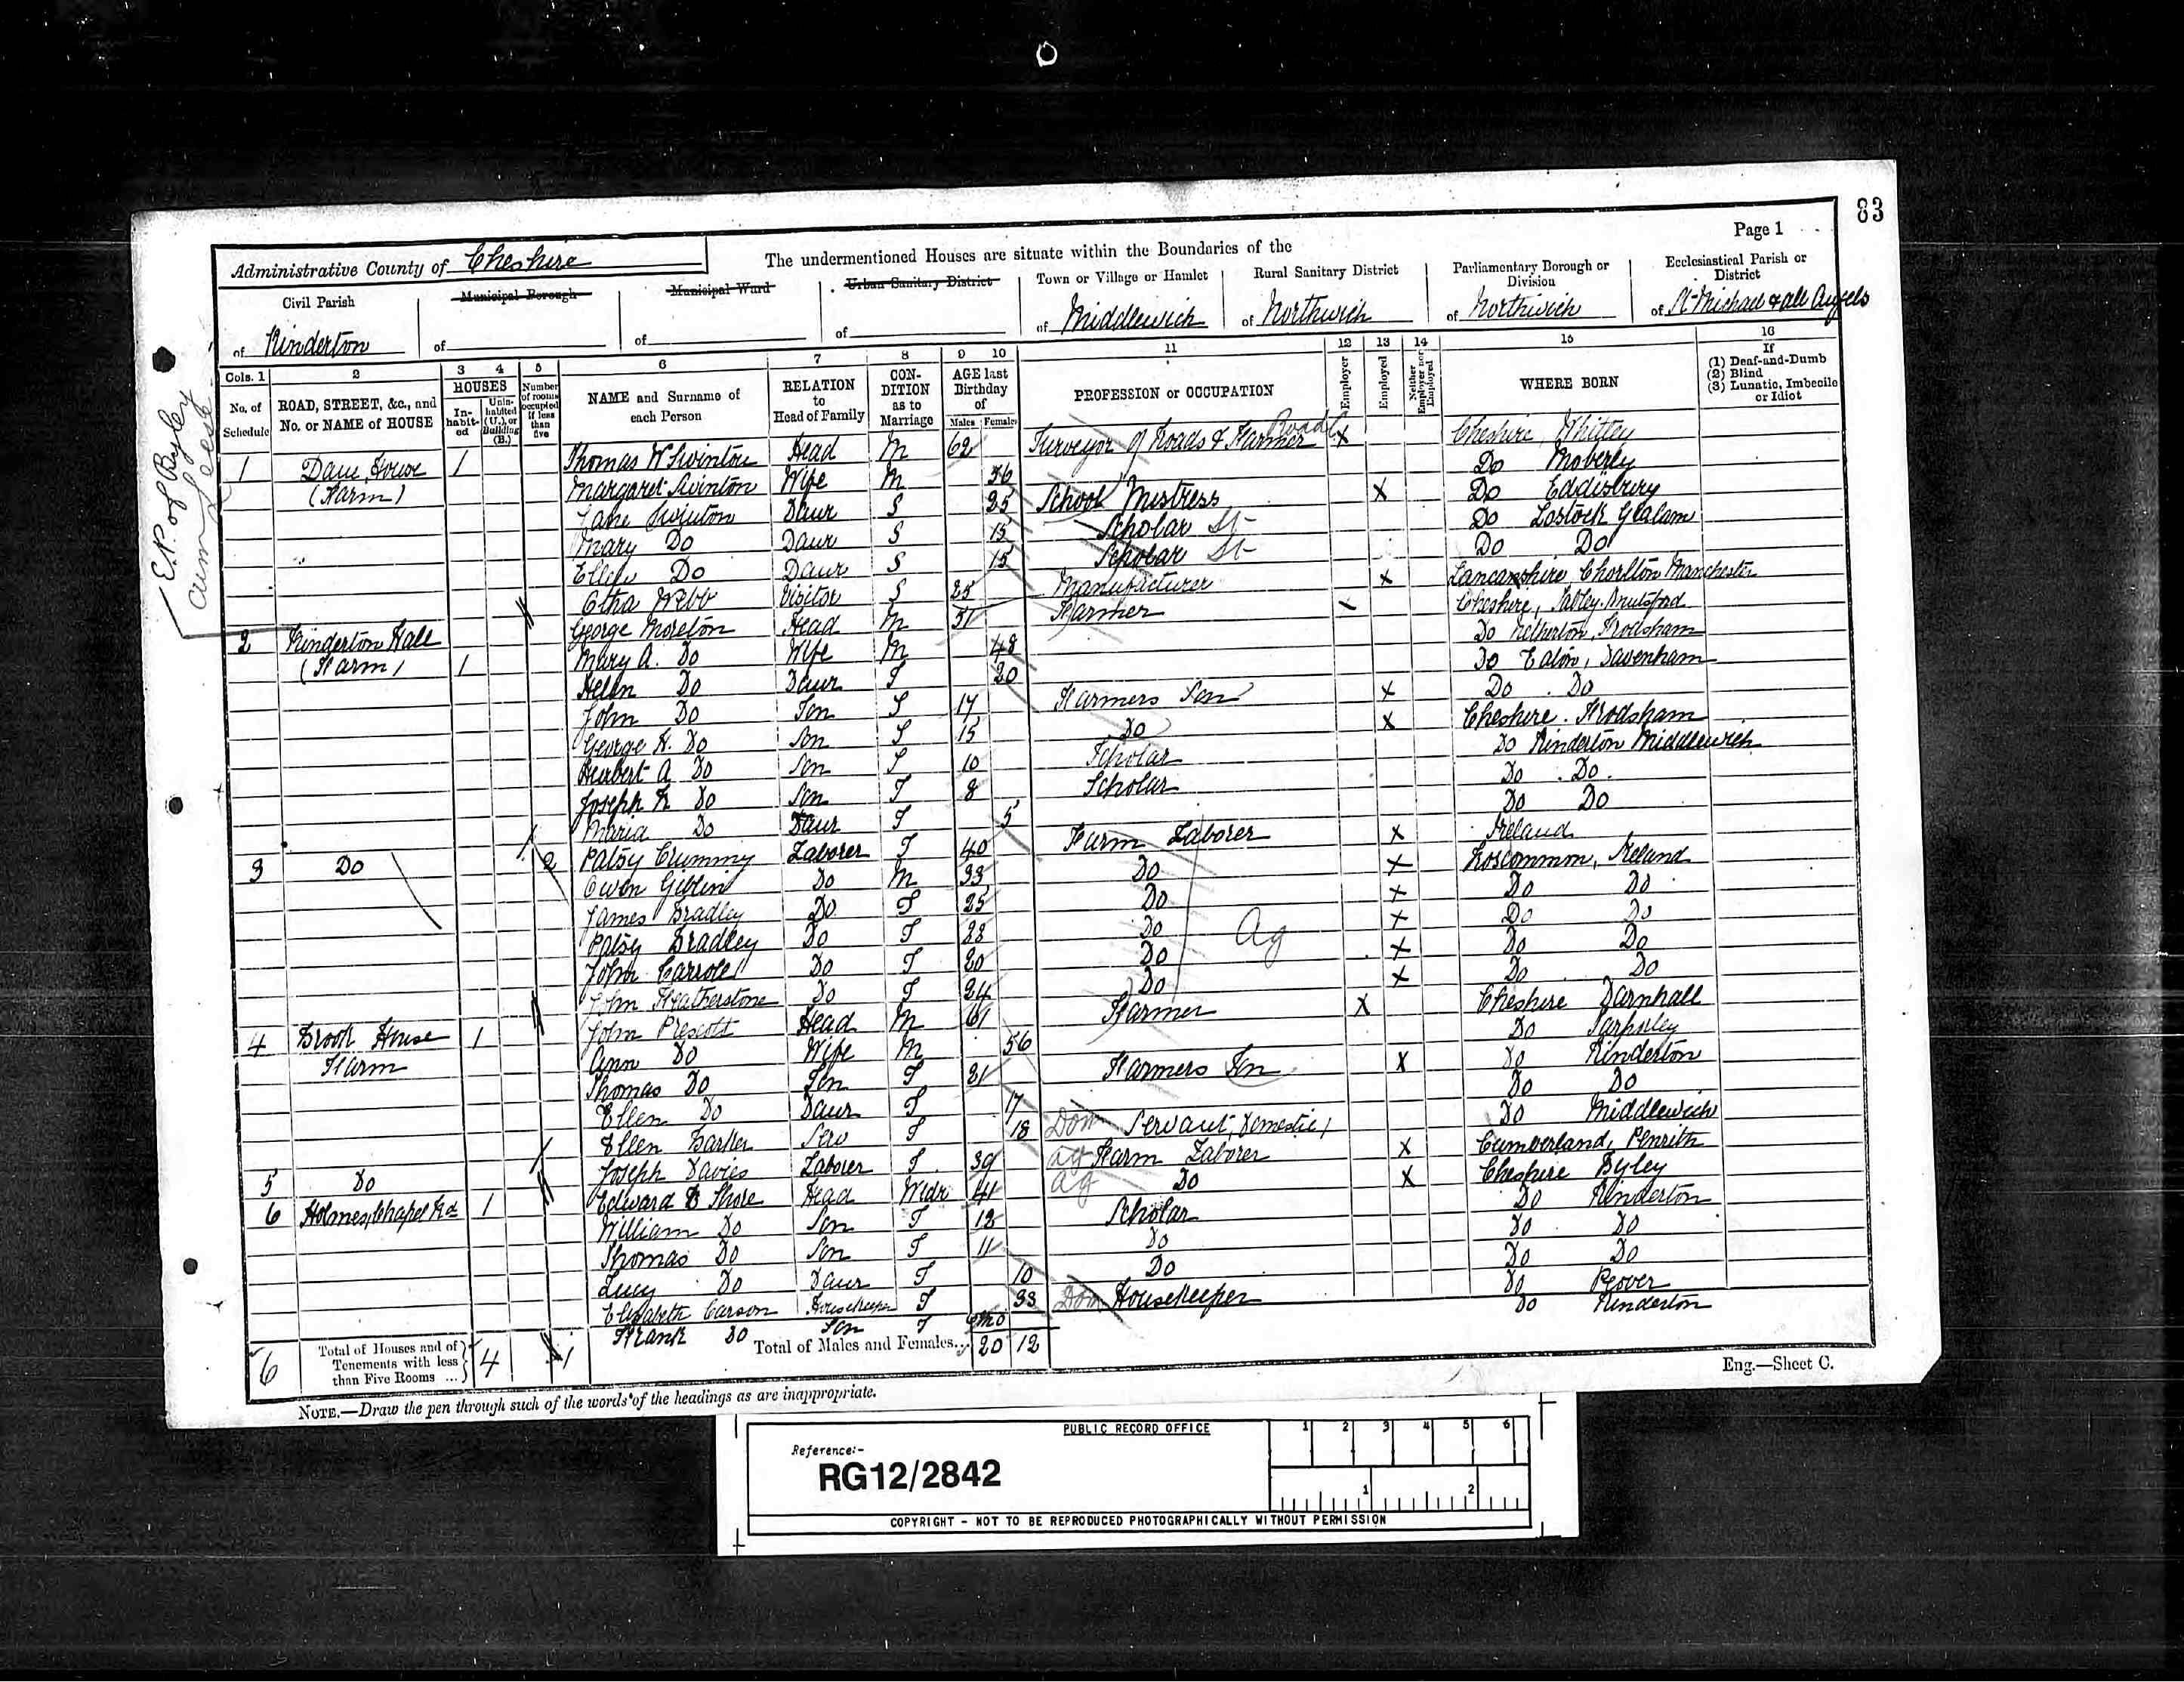 83
Page 1
Administrative County of Cheshire
The undermentioned Houses are situate within the Boundaries of the
Civil Parish of Kinderton
Municipal Borough of
Municipal Ward of
Urban Sanitary District of
Town or Village or Hamlet of Middlewich
Rural Sanitary District of Northwich
Parliamentary Borough or Division of Northwich
Ecclesiastical Parish or District of St Michael & all Angels
E.P. of Byley cum Lees
Cols. 1 2 3 4 5 6 7 8 9 10 11 12 13 14 15 16
No. of Schedule
ROAD, STREET, &c., and No. or NAME of HOUSE
HOUSES
In-habit-ed
Unin-habited (U.), or Building (B.)
Number of rooms occupied if less than five
NAME and Surname of each Person
RELATION to Head of Family
CON-DITION as to Marriage
AGE last Birthday of
Males Females
PROFESSION or OCCUPATION
Employer
Employed
Neither Employer nor Employed
WHERE BORN
If (1) Deaf-and-Dumb (2) Blind (3) Lunatic, Imbecile or Idiot
1 House (Farm) 1 Thomas W Swinton Head M 62 Surveyor of Roads & Farmer Road X Cheshire, Whitley
Margaret Swinton Wife M 56 Do Moberly
Jane Swinton Daur S 25 School Mistress X Do Eddisbury
Mary Do Daur S 15 Scholar St Do Lostock Gralam
Ellen Do Daur S 15 Scholar St Do Do
Webb Visitor S 25 Manufacturer X Lancanshire, Chorlton Manchester
2 Kinderton Hall (Farm) 1 George Moreton Head M 51 Farmer Cheshire, Tabley Knutsford
Mary A. Do Wife M 48 Do Netherton, Frodsham
Helen Do Daur S 20 Do Eaton, Davenham
John Do Son S 17 Farmers Son X Do Do
George H. Do Son S 15 Do X Cheshire Frodsham
Herbert A Do Son S 10 Scholar Do Kinderton Middlewich
Joseph Do Son S 8 Scholar Do Do
Maria Do Daur S 5 Do Do
3 Do 2 Patsy Crummy Laborer S 40 Farm Laborer X Ireland
Owen Giblin Do M 33 Do X Roscommon, Ireland
James Bradley Do S 25 Do X Do Do
Patsy Bradley Do S Do X Do Do
John Do S 20 Do X Do Do
John Featherstone Do S 24 Do X Do Do
Ag
4 Brook House Farm 1 John Prescott Head M 61 Farmer X Cheshire Darnhall
Ann Do Wife M 56 Do Tarporley
Thomas Do Son S 21 Farmers Son X Do Kinderton
Ellen Do Daur S 17 Do Do
Ellen Barker Serv S 18 Dom Servant, Domestic Do Middlewich
5 Do Joseph Davies Laborer S 39 Ag Farm Laborer X Cumberland, Penrith
6 Holmes Chapel Rd 1 Edward Shore Head Widr 41 Ag Do X Cheshire Byley
William Do Son S 12 Scholar Do Kinderton
Thomas Do Son S 11 Do Do Do
Lucy Do Daur S 10 Do Do Do
Elizabeth Carson Housekeeper S 33 Dom Housekeeper Do Peover
Frank Do Son S Mo Do Kinderton
6 Total of Houses and of Tenements with less than Five Rooms ... 4 1 Total of Males and Females... 20 12
Eng.—Sheet C.
NOTE.—Draw the pen through such of the words of the headings as are inappropriate.
PUBLIC RECORD OFFICE
1 2 3 4 5 6
Reference:-
RG12/2842
1 2
COPYRIGHT - NOT TO BE REPRODUCED PHOTOGRAPHICALLY WITHOUT PERMISSION